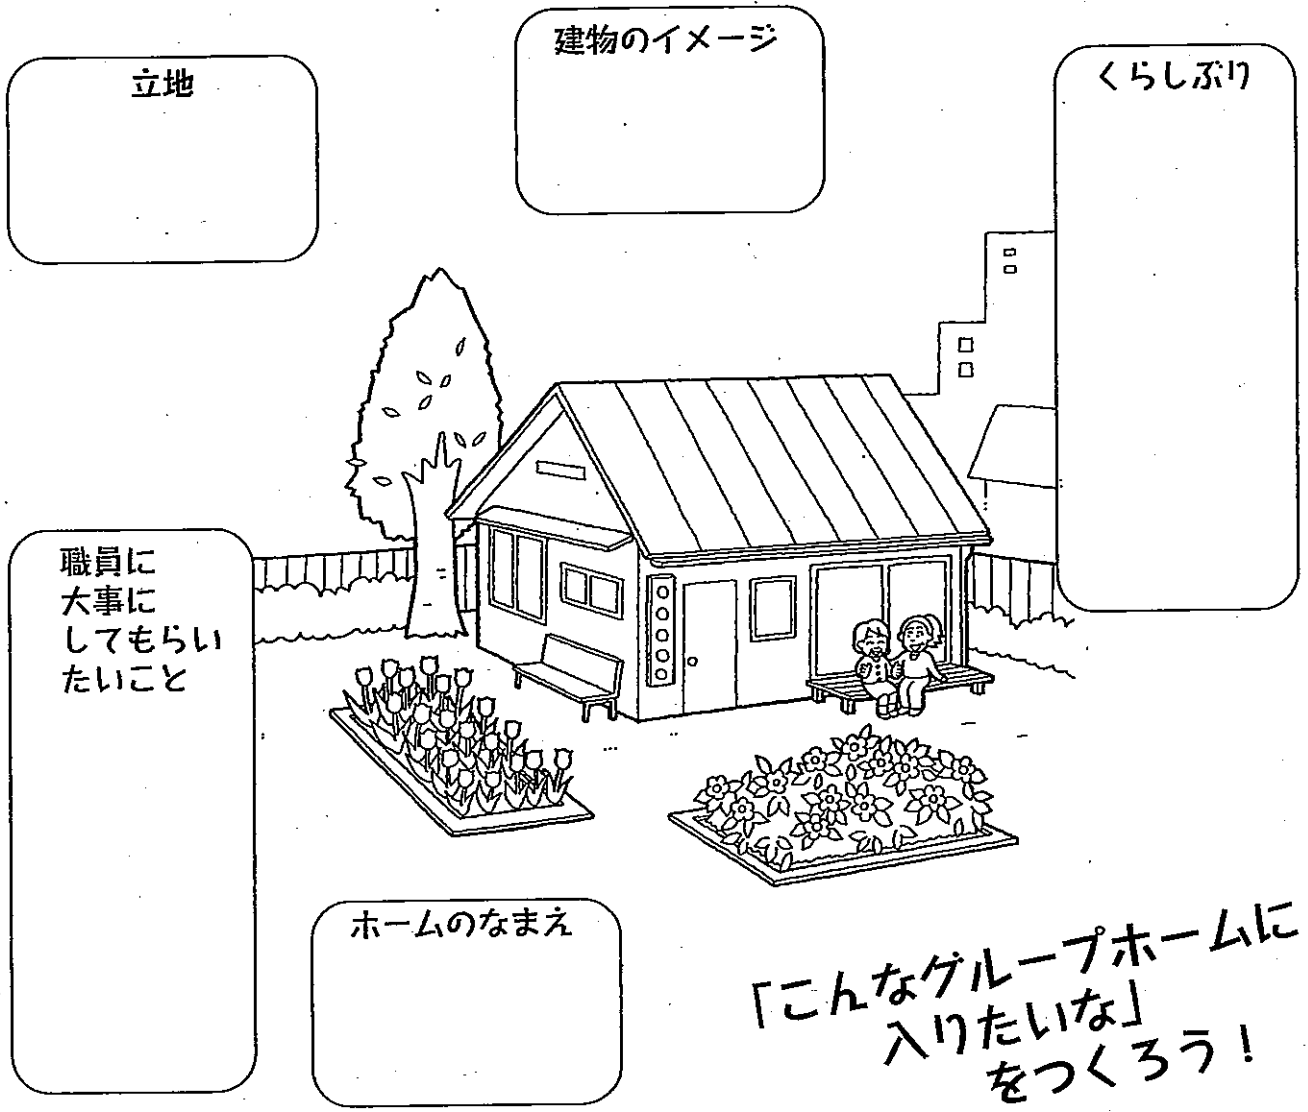 建物のイメージ
立地
くらしぶり
職員に
大事に
してもらい
たいこと
ホームのなまえ
「こんなグループホームに
入りたいな」
をつくろう！